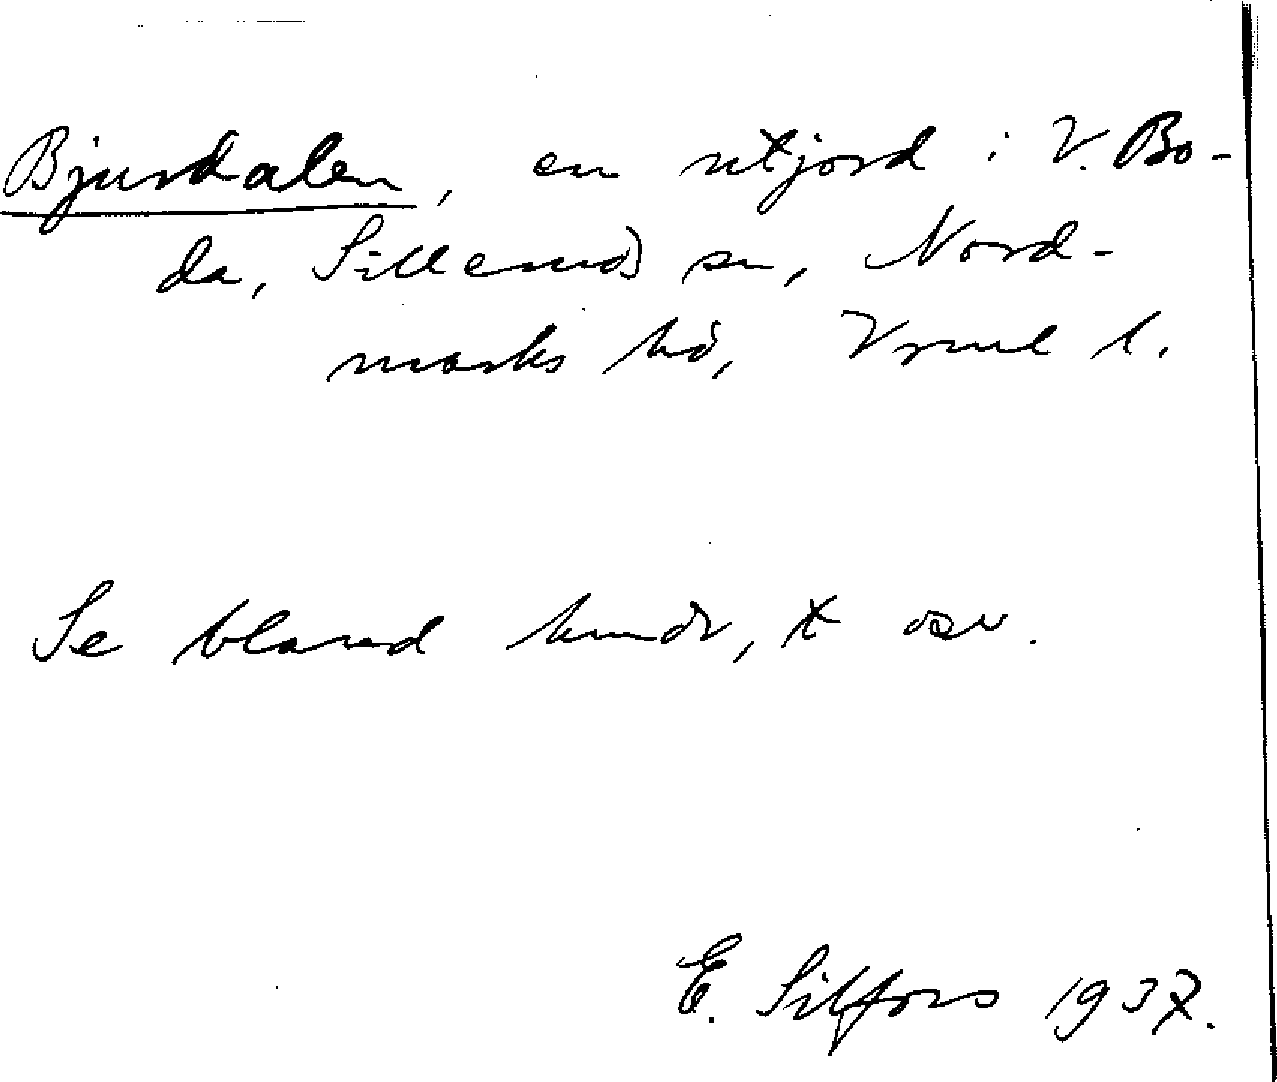 Bjurdalen, en utjord i V. Bo-
da, Silleruds sn, Nord-
marks hd, Vrml l.
Se bland
E. Silfors 1937.